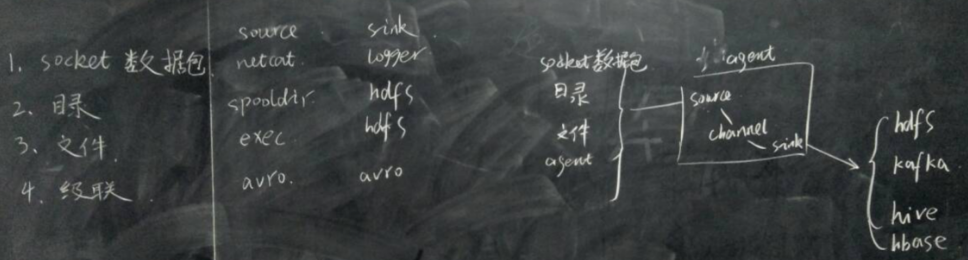 source sink
1. socket 数据包 netcat. logger
2. 目录 spooldir. hdfs
3. 文件. exec hdfs
4. 级联. avro. avro
socket数据包
目录
文件
agent
agent
source
channel
sink
hdfs
kafka
hive
hbase